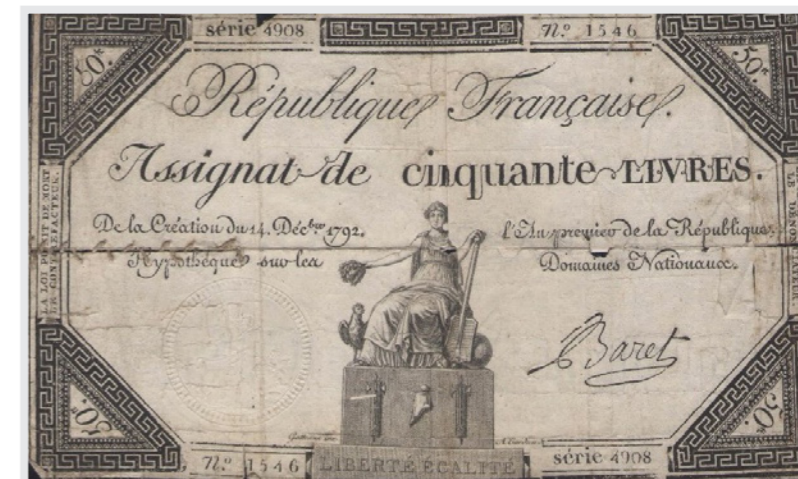 série 4908
N.° 1546
50.tt
50.tt
République Française.
Assignat de cinquante LIVRES.
De la Création du 14. Décbre 1792.
l'An premier de la République.
Hypothéqué sur les
Domaines Nationaux.
LA LOI PUNIT DE MORT
LE CONTREFACTEUR.
LE DÉNONCIATEUR.
Baret
50.tt
50.tt
N.° 1546
LIBERTÉ ÉGALITÉ
série 4908